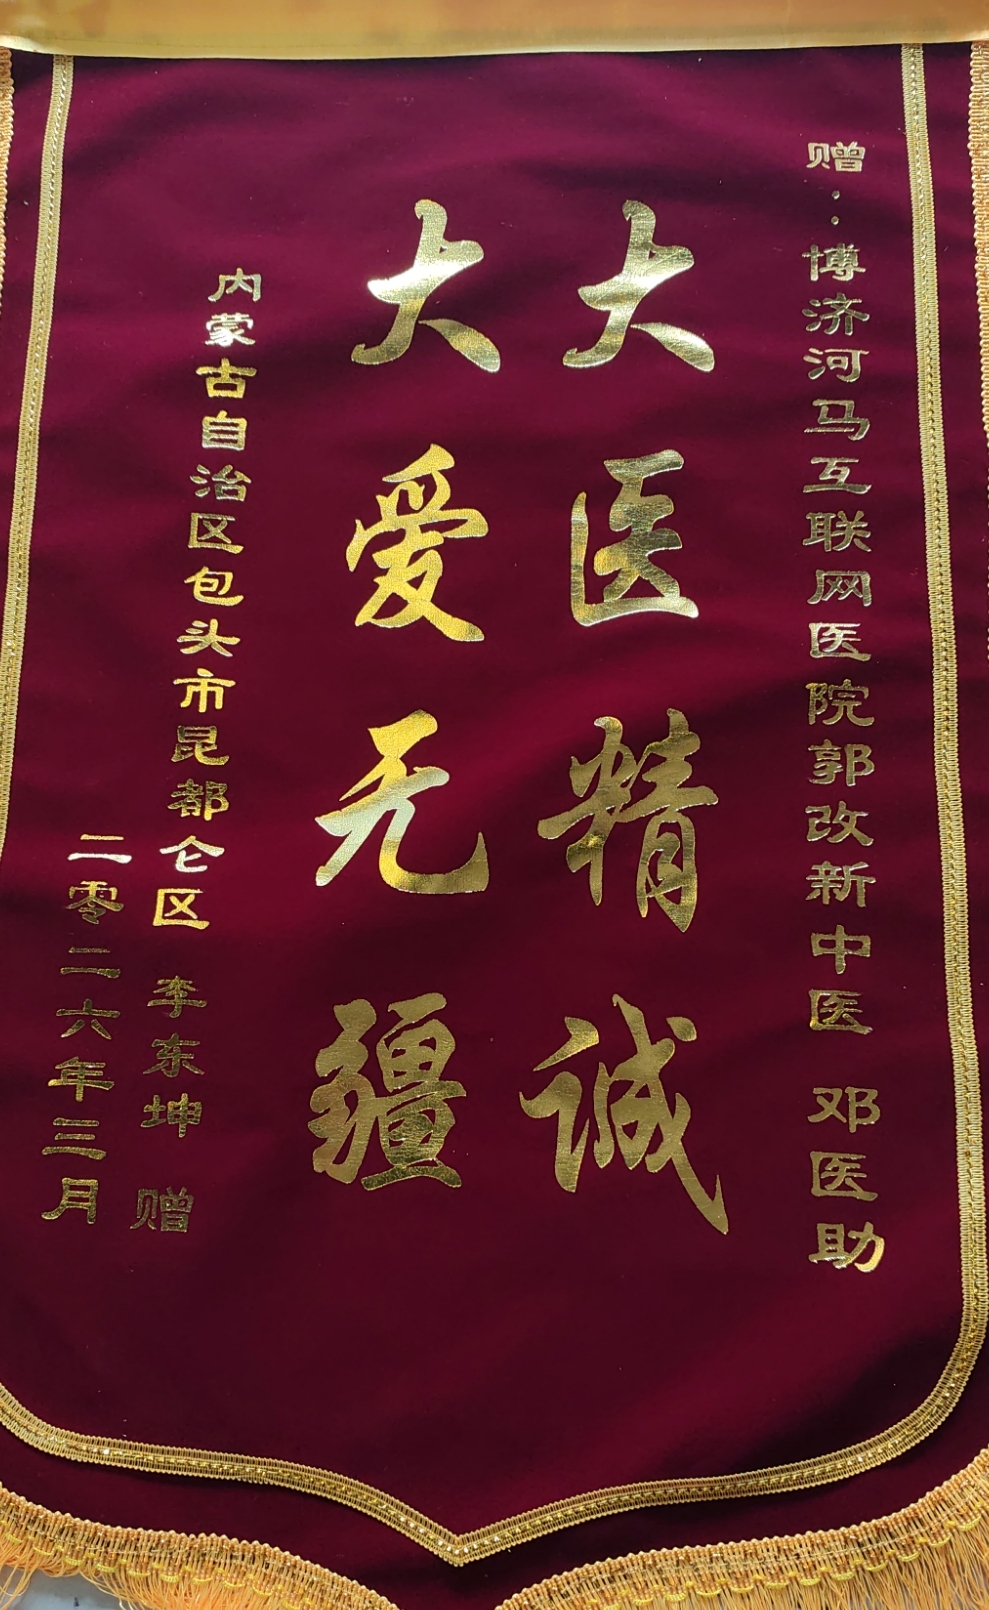 赠：博济河马互联网医院郭改新中医 邓医助
大医精诚
大爱无疆
内蒙古自治区包头市昆都仑区 李东坤 赠
二零二六年三月